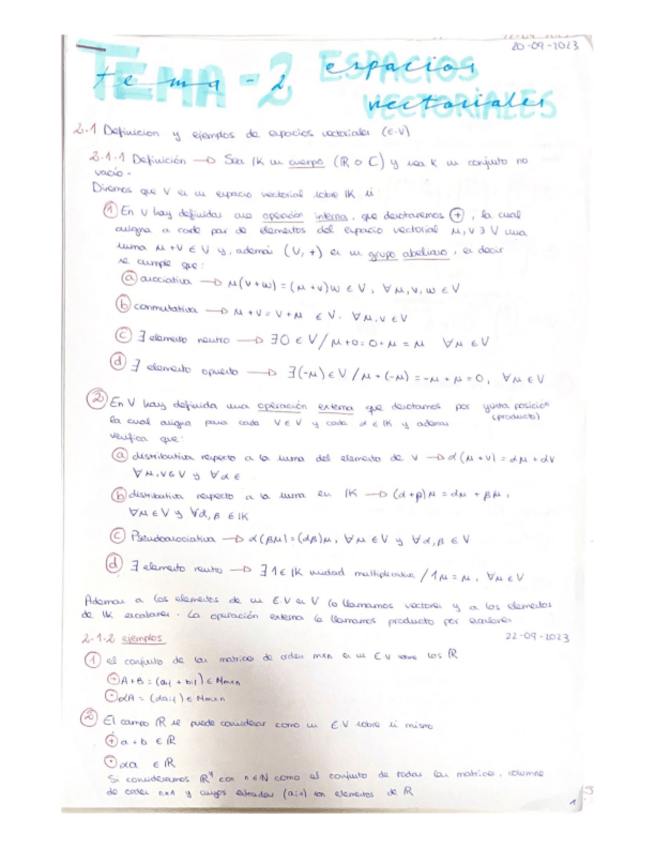 20-09-2023
TEMA-2 ESPACIOS VECTORIALES
tema-2 espacios
vectoriales
2.1 Definicion y ejemplos de espacios vectoriales (E.V)
2.1.1 Definición → Sea IK un cuerpo (R o C) y sea K un conjunto no
vacio.
Diremos que V es un espacio vectorial sobre IK si:
① En V hay definidas una operación interna, que denotaremos ⊕, la cual
asigna a cada par de elementos del espacio vectorial μ, v ∋ V una
suma μ+v ∈ V y, además (V, +) es un grupo abeliano, es decir
se cumple que:
ⓐ asociativa → μ(v+w) = (μ+v)w ∈ V, ∀μ, v, w ∈ V
ⓑ conmutativa → μ+v = v+μ ∈ V. ∀μ, v ∈ V
ⓒ ∃ elemento neutro → ∃0 ∈ V / μ+0 = 0+μ = μ ∀μ ∈ V
ⓓ ∃ elemento opuesto → ∃(-μ) ∈ V / μ+(-μ) = -μ+μ = 0, ∀μ ∈ V
② En V hay definida una operación externa que denotamos por yuxta posición
(producto)
la cual asigna para cada V ∈ V y cada α ∈ IK y ademas
verifica que:
ⓐ distributiva respecto a la suma del elemento de V → α(μ+v) = αμ + αv
∀μ, v ∈ V y ∀α ∈
ⓑ distributiva respecto a la suma en IK → (α+β)μ = αμ + βμ,
∀μ ∈ V y ∀α, β ∈ IK
ⓒ Pseudoasociativa → α(βμ) = (αβ)μ, ∀μ ∈ V y ∀α, β ∈ V
ⓓ ∃ elemento neutro → ∃1 ∈ IK unidad multiplicativa / 1μ = μ, ∀μ ∈ V
Ademas a los elementos de un E.V en V lo llamamos vectores y a los elementos
de IK escalares. La operación externa la llamamos producto por escalares
22-09-2023
2.1.2 ejemplos
① el conjunto de las matrices de orden mxn es un E.V sobre los R
⊕ A+B = (aij + bij) ∈ Mmxn
⊙ αA = (αaij) ∈ Mmxn
② El campo R se puede considerar como un E.V sobre si mismo
⊕ a+b ∈ R
⊙ αa ∈ R
Si consideramos Rⁿ con n ∈ N como el conjunto de todas las matrices, columna
de orden nxn y cuyas entradas (ai1) son elementos de R
1